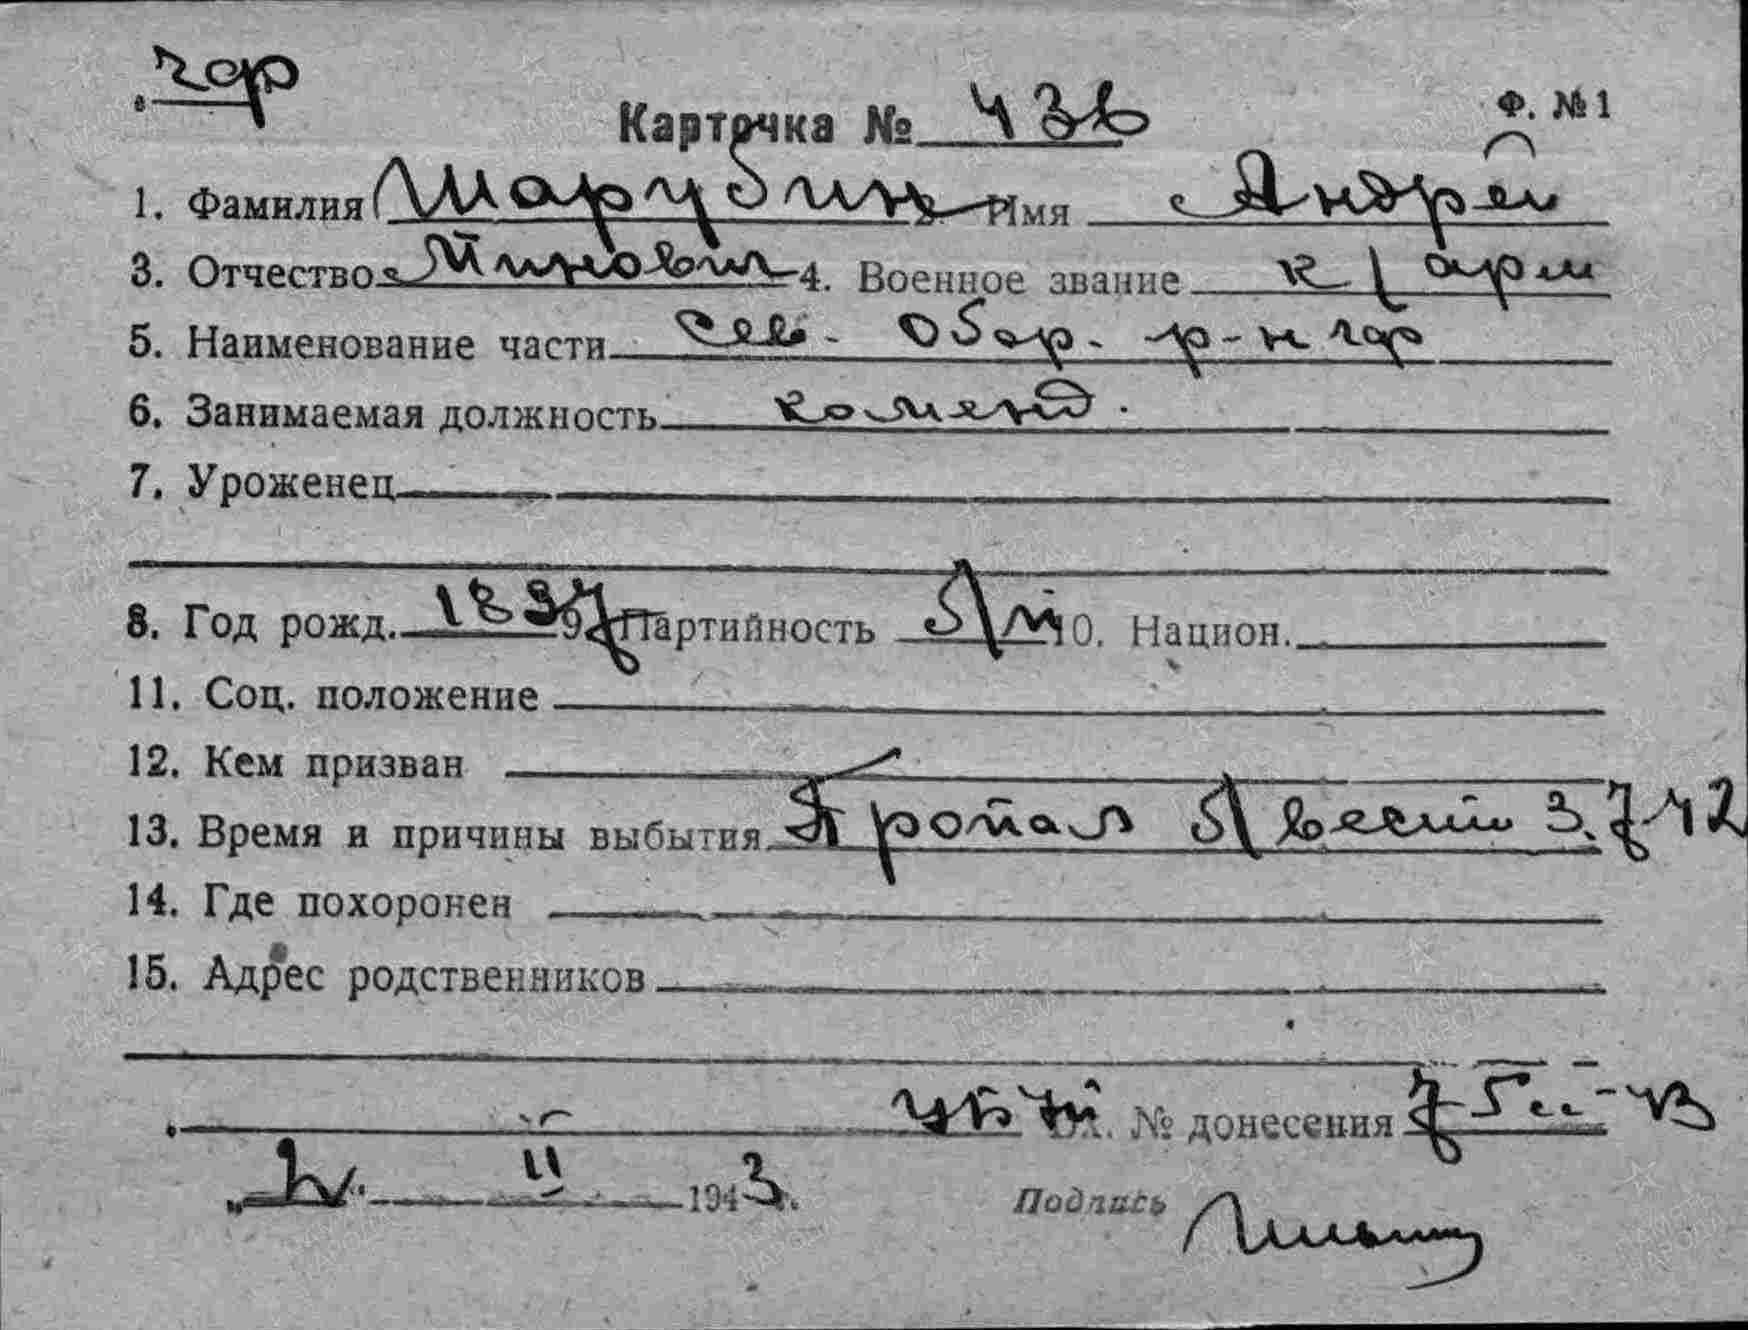 чф
Карточка № 436 Ф. № 1
1. Фамилия Шарубин Имя Андрей
3. Отчество Минович 4. Военное звание к/арм
5. Наименование части Сев. Обор. р-н чф
6. Занимаемая должность коменд.
7. Уроженец
8. Год рожд. 1897 9. Партийность б/п 10. Национ.
11. Соц. положение
12. Кем призван
13. Время и причины выбытия Пропал б/вести 3.7.42
14. Где похоронен
15. Адрес родственников
№ донесения
II 1943.
Подпись